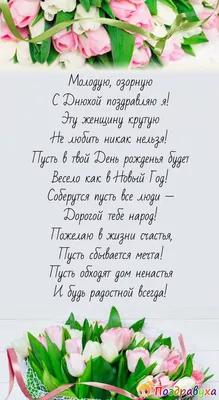 Молодую, озорную
С Днюхой поздравляю я!
Эту женщину крутую
Не любить никак нельзя!
Пусть в твой День рожденья будет
Весело как в Новый Год!
Соберутся пусть все люди –
Дорогой тебе народ!
Пожелаю в жизни счастья,
Пусть сбывается мечта!
Пусть обходят дом ненастья
И будь радостной всегда!
Поздравуха